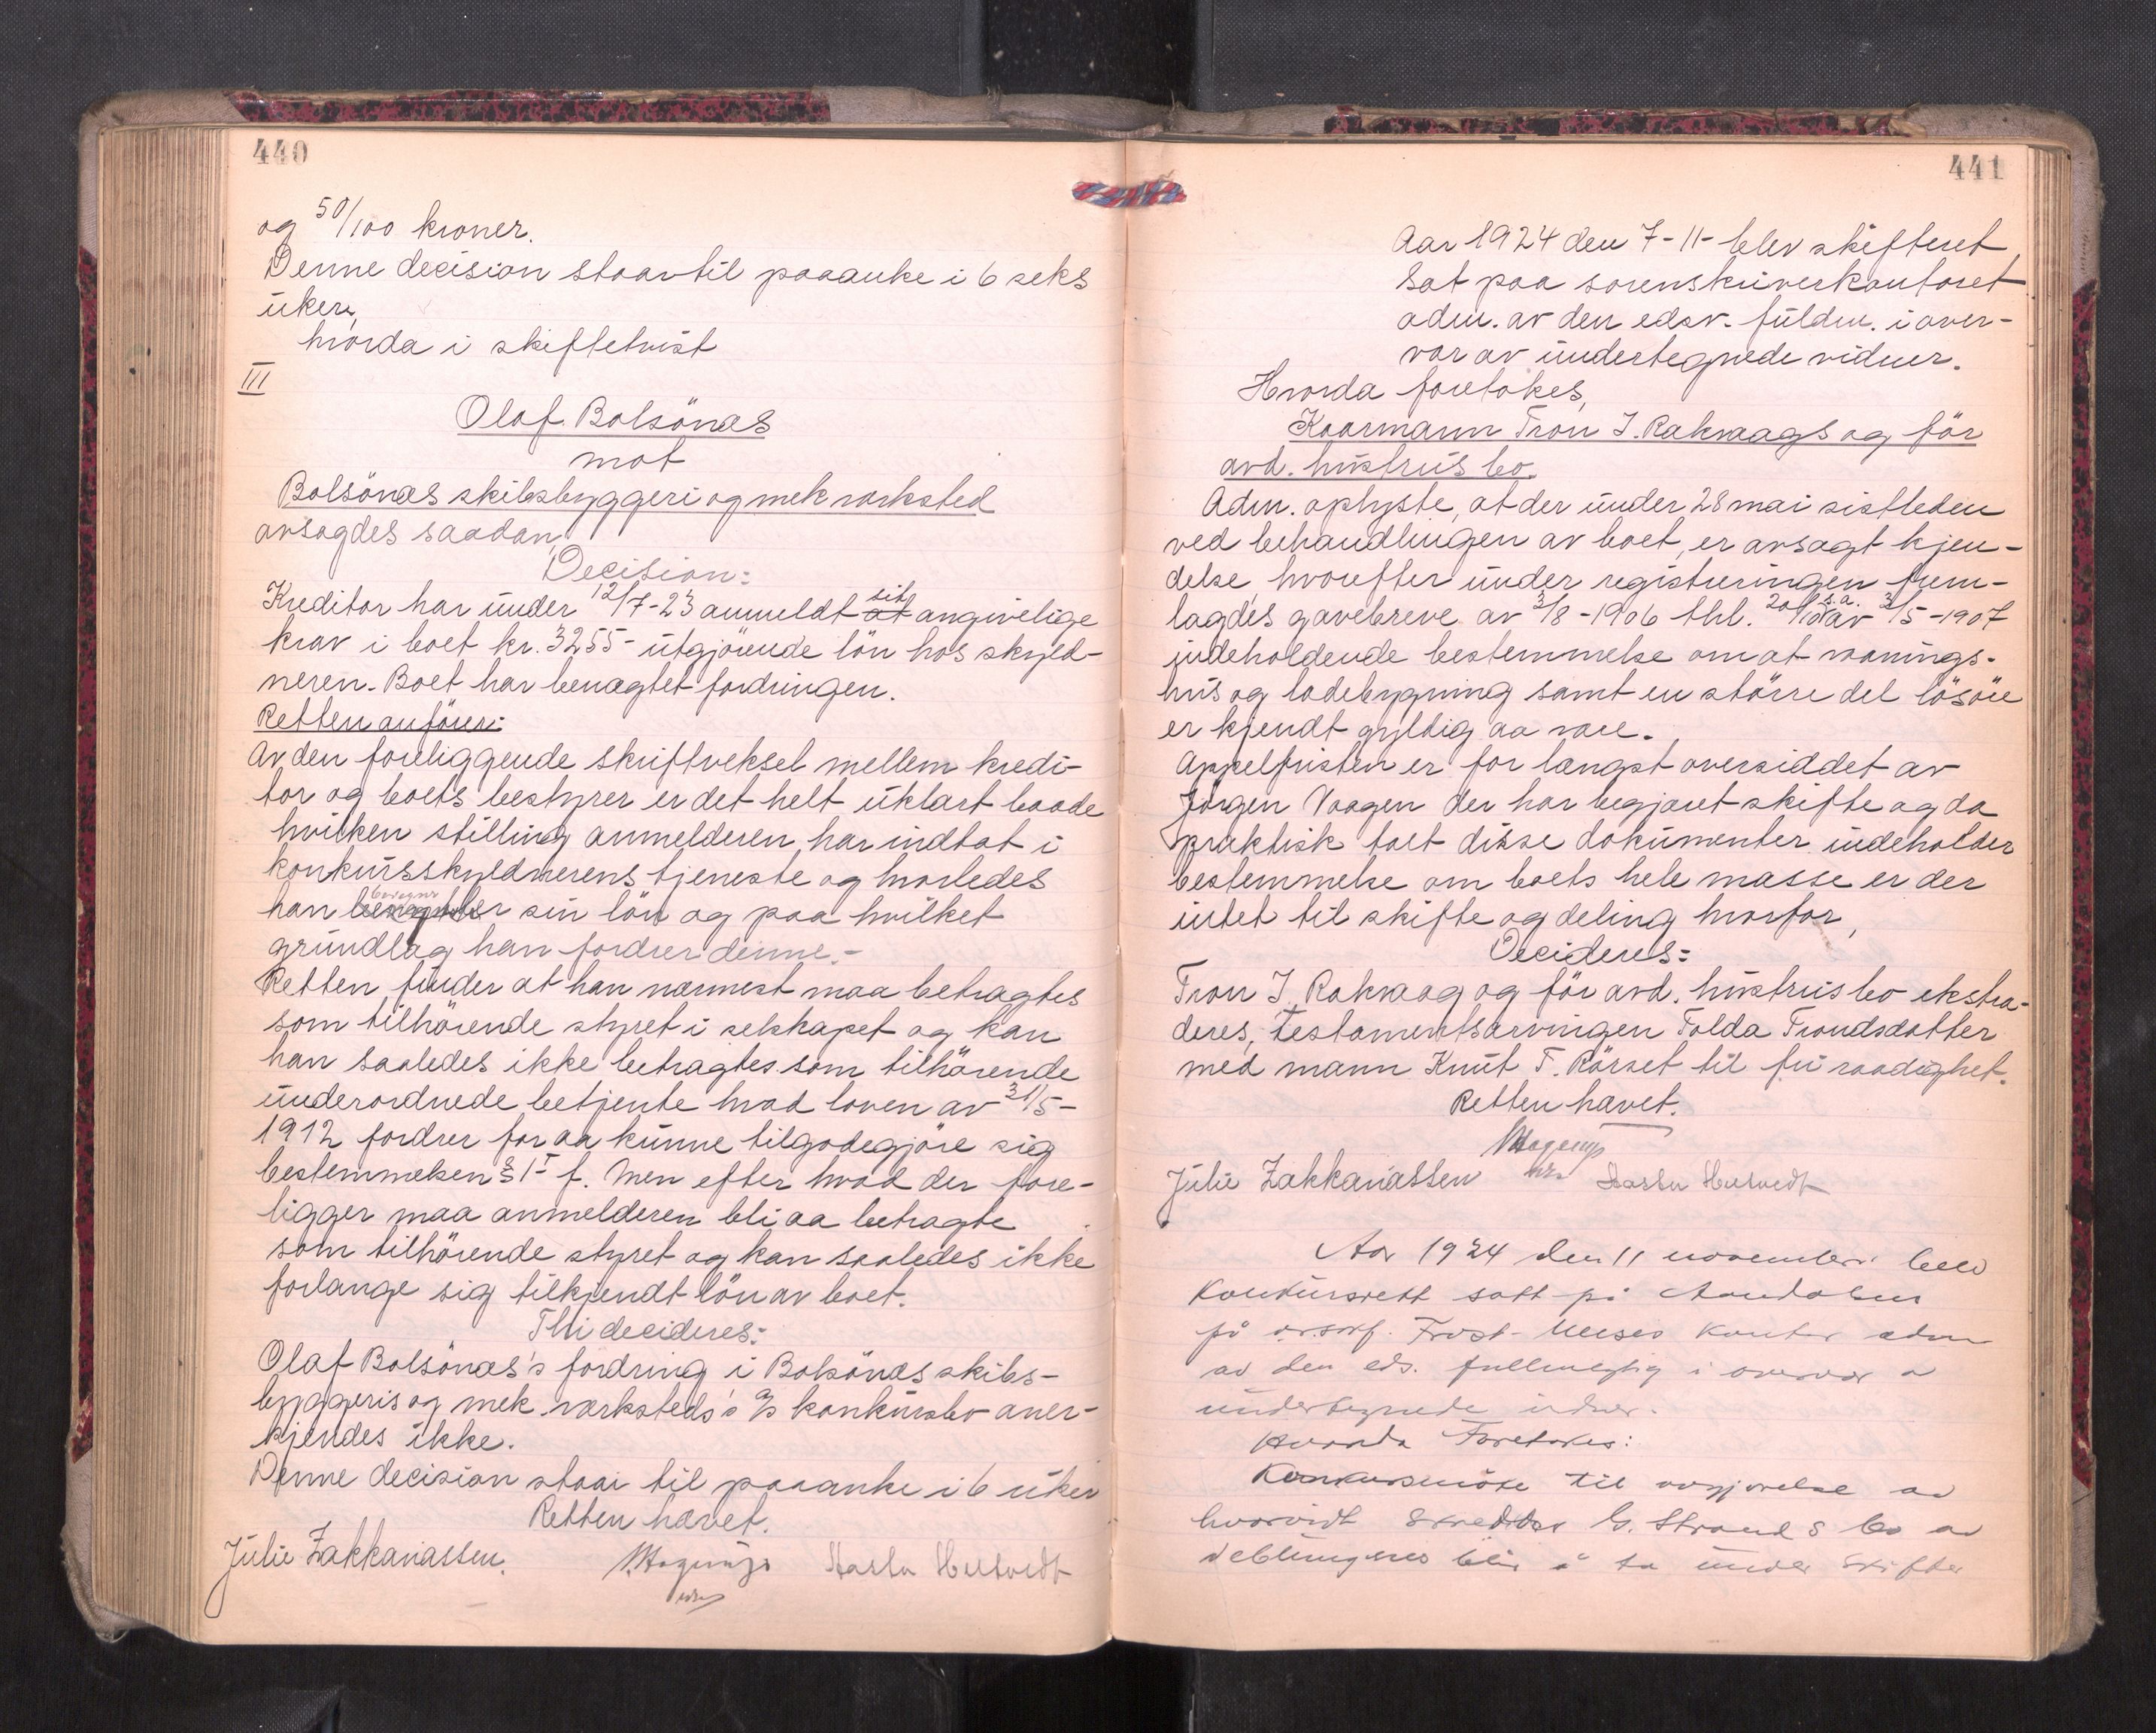 440
og 50/100 kroner.
Denne decision staar til paaanke i 6 seks
uker,
hvorda i skiftetvist
III
Olaf Bolsönæs
mot
Bolsönæs skibsbyggeri og mek verksted
avsagdes saadan,
Decision:
Kreditor har under 12/7-23 anmeldt at sit angivelige
krav i boet kr. 3255- utgjörende lön hos skyld-
neren. Boet har benægtet fordringen.
Retten anförer:
Av den foreliggende skriftveksel mellem kredi-
tor og boets bestyrer er det helt uklart baade
hvilken stilling anmelderen har indtat i
konkursskyldnerens tjeneste og hvorledes
han beregner sin lön og paa hvilket
grundlag han fordrer denne.-
Retten finder at han nærmest maa betragtes
som tilhörende styret i selskapet og kan
han saaledes ikke betragtes som tilhörende
underordnede betjente hvad loven av 31/5-
1912 fordrer for aa kunne tilgodegjöre sig
bestemmelsen § 1- f. Men efter hvad der fore-
ligger maa anmelderen bli aa betragte
som tilhörende styret og kan saaledes ikke
forlange sig tilkjendt lön av boet.
Thi decideres:
Olaf Bolsönæs's fordring i Bolsönæs skibs-
byggeris og mek verksteds's a/s konkursbo aner-
kjendes ikke.
Denne decision staar til paaanke i 6 uker
Retten hævet.
Julie Zakkariassen.
441
Aar 1924 den 7-11- blev skifteret
sat paa sorenskriverkontoret
adm. av den edsv. fuldm. i over-
vær av undertegnede vidner.
Hvorda foretokes,
Kaarmann Tron J. Rakvaags og för
avd. hustrus bo.
Adm. oplyste, at der under 28 mai sistleden
ved behandlingen av boet, er avsagt kjen-
delse, hvorefter under registreringen frem-
lagdes gavebreve av 3/8-1906 thl. 20/10 s.a. av 3/5-1907
indeholdende bestemmelse om at vaanings-
hus og ladebygning samt en större del lösöre
er kjendt gyldig aa være.
Appelfristen er for længst oversiddet av
Jörgen Vaagen der har begjæret skifte og da
praktisk talt disse dokumenter indeholder
bestemmelse om boets hele masse er der
intet til skifte og deling hvorfor,
Decideres:
Tron J. Rakvaag og för avd. hustrus bo ekstra-
deres, testamentsarvingen Tolda Trondsdatter
med mann Knut T. Rörset til fri raadighet.
Retten hævet.
Julie Zakkariassen
Aar 1924 den 11 november blev
Konkursrett satt på Aandalsnes
på Frost kontor adm
av den eds. fullmegtig i overvær a
undertegnede vidner.
Hvorda Foretokes:
Konkursmöte til avgjörelse av
hvorvidt G. Strands bo av
blir å ta under skifte